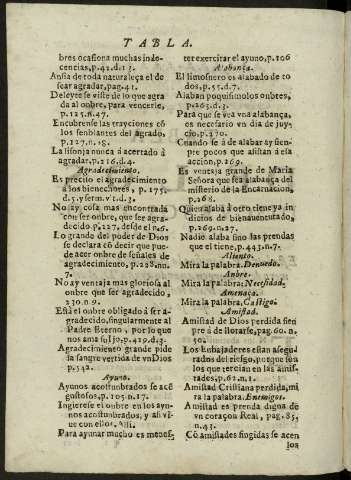 TABLA.
bres ocasiona muchas indo-
cencias, p.42.d.13.
Ansia de toda naturaleça el de
sear agradar, pag.41.
Deleyte se viste de lo que agra
da al onbre, para vencerle,
p.125.n.47.
Encubrense las trayciones cõ
los senblantes del agrado,
p.127.n.58.
La lisonja nunca à acertado à
agradar.p.216.d.4.
Agradecimiento.
Es precito el agradecimiento
à los bienechores, p.175.
d.5.y serm.vi.d.3.
No ay cosa mas encontrada
con ser onbre, que ser agra-
decido.p.127.desde el n.6.
Lo grande del poder de Dios
se declara cõ decir que pue-
de acer onbre de señales de
agradecimiento, p.228.nu.
7.
No ay ventaja mas gloriosa al
onbre que ser agradecido,
230.n.9.
Està el onbre obligado à ser a-
gradecido, singularmente al
Padre Eterno, por lo que
nos ama su ljo, p.429.d.3.
Agradecimiento grande pide
la sangre vertida de vn Dios
p.542.
Ayuno.
Ayunos acostunbrados se acẽ
gustosos, p.105.n.17.
Ingierese el onbre en los ayu-
nos acostunbrados, y asi vi-
ue con ellos,
Para ayunar mucho es menes-
ter exercitar el ayuno, p.106
Alabança.
El limosnero es alabado de to-
dos, p.55.d.7.
Alaban poquisimolos onbres,
p.263.d.3.
Para que se vea vna alabança,
es necesario vn dia de juy-
cio, p.370.
Cuando se à de alabar ay sien-
pre pocos que asistan à esa
accion, p.269.
Es ventaja grande de Maria
Señora que sea alabança del
misterio de la Encarnacion,
p.268.
Quien alaba à otro tiene ya in
dicios de bienauenturado,
p.269.n.27.
Nadie alaba sino las prendas
que el tiene, p.443.n.7.
Aliento.
Mira la palabra. Denuedo.
Anbre.
Mira la palabra: Necesidad,
Amenaça.
Mira la palabra, Castigo.
Amistad.
Amistad de Dios perdida sien
pre à de llorarse, pag.60.n.
50.
Los Enbajadores están asegu-
rados del riesgo, porque son
los que tercian en las amis-
tades, p.62.n.1.
Amistad Cristiana perdida, mi
ra la palabra. Enemigos.
Amistad es prenda digna de
vn coraçon Real, pag.85,
n.43.
Cõ amistades fingidas se acen
los